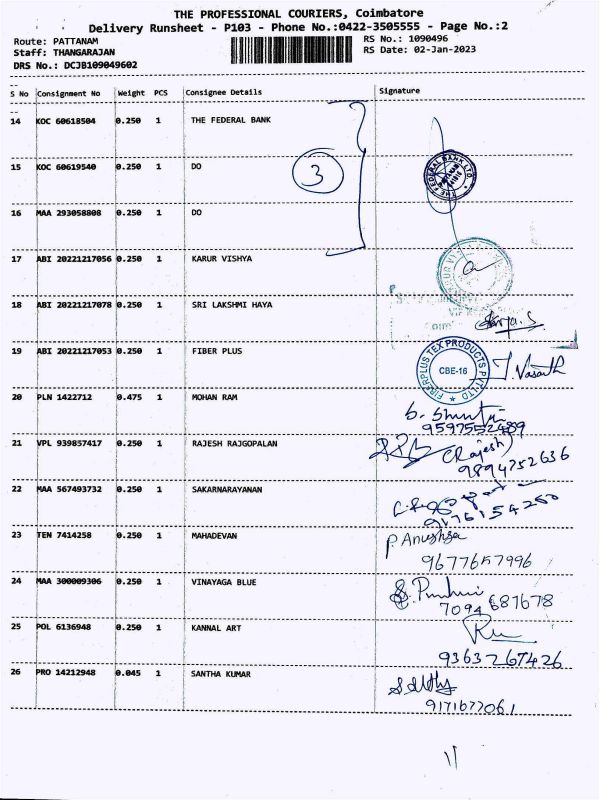 THE PROFESSIONAL COURIERS, Coimbatore
Delivery Runsheet - P103 - Phone No.:0422-3505555 - Page No.:2
Route: PATTANAM
RS No.: 1090496
Staff: THANGARAJAN
RS Date: 02-Jan-2023
DRS No.: DCJB109049602
S No Consignment No Weight PCS Consignee Details Signature
14 KOC 60618504 0.250 1 THE FEDERAL BANK
15 KOC 60619540 0.250 1 DO
3
THE FEDERAL BANK LTD.
16 MAA 293058808 0.250 1 DO
17 ABI 20221217056 0.250 1 KARUR VISHYA
18 ABI 20221217078 0.250 1 SRI LAKSHMI HAYA
19 ABI 20221217053 0.250 1 FIBER PLUS
FIBERPLUS TEX PRODUCTS PVT LTD
CBE-16
J. Vasanth
20 PLN 1422712 0.475 1 MOHAN RAM
9597552489
21 VPL 939857417 0.250 1 RAJESH RAJGOPALAN
(Rajesh)
9894752636
22 MAA 567493732 0.250 1 SAKARNARAYANAN
9176154250
23 TEN 7414258 0.250 1 MAHADEVAN
P. Anushya
9677657996
24 MAA 300009306 0.250 1 VINAYAGA BLUE
7094 681678
25 POL 6136948 0.250 1 KANNAL ART
9363267426
26 PRO 14212948 0.045 1 SANTHA KUMAR
9171677061